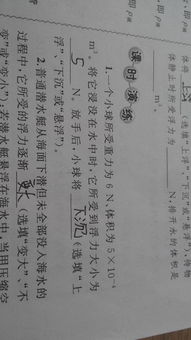 体将 上浮 (选填"上浮""下沉"或"悬浮"),待物
体静止时所受浮力为 N,排开水的体积是
m³。
课时演练
1.一个小球所受重力为 6 N,体积为 5×10⁻⁴
m³。将它浸没在水中时,它所受到浮力大小为
5 N。放手后,小球将 下沉 (选填"上
浮""下沉"或"悬浮")。
2.普通潜水艇从海面下潜但未全部没入海水的
过程中,它所受的浮力逐渐 变大 (选填"变大""不
变"或"变小");若潜水艇悬浮在海水中,当用压缩空